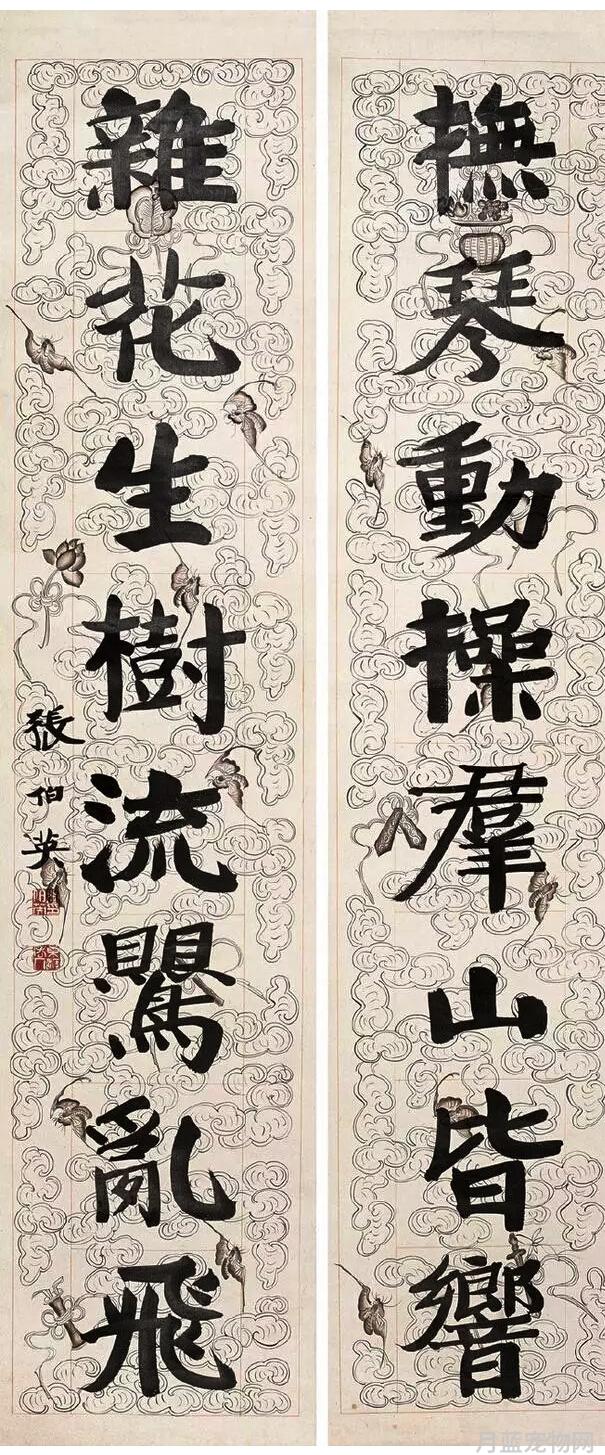 撫琴動操羣山皆響
雜花生樹流鸎亂飛
張伯英
月蓝宠物网